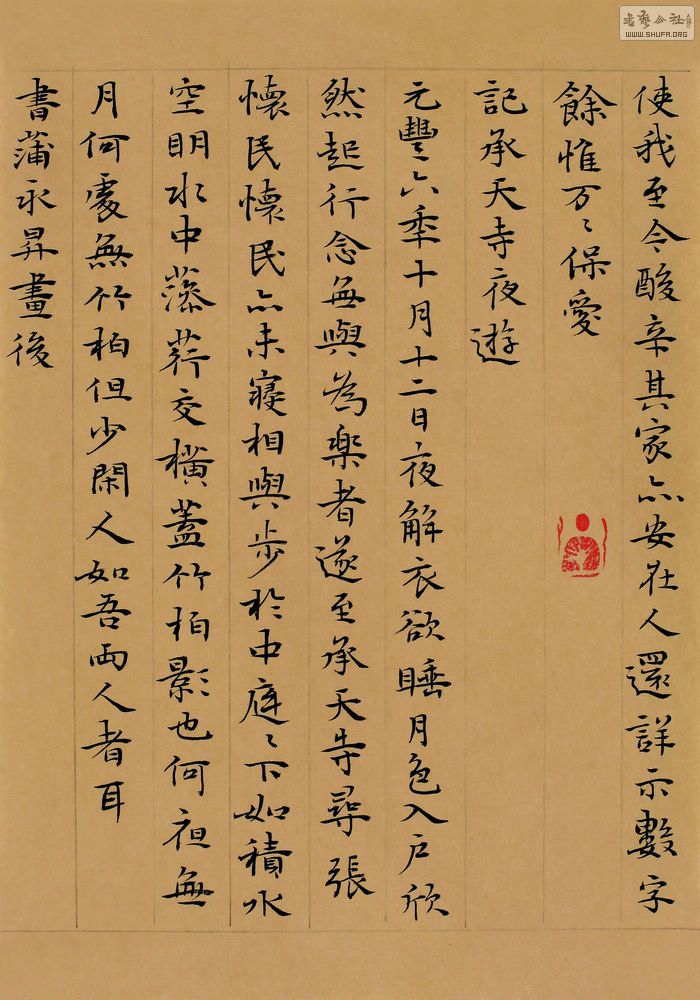 使我至今酸辛其家亦安在人還詳示數字
餘惟万〻保愛
記承天寺夜遊
元豐六年十月十二日夜解衣欲睡月色入戶欣
然起行念無與為樂者遂至承天寺尋張
懷民懷民亦未寢相與步於中庭〻下如積水
空明水中藻荇交橫蓋竹柏影也何夜無
月何處無竹柏但少閑人如吾兩人者耳
書蒲永昇畫後
WWW.SHUFA.ORG